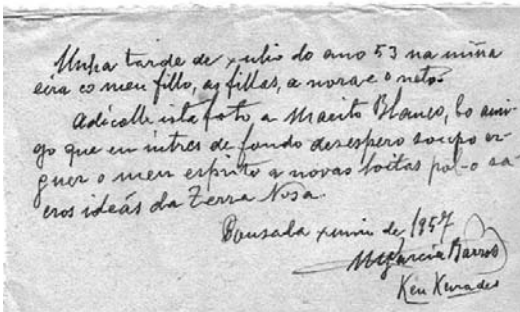 Unha tarde de xulio do ano 53 na miña
eira co meu fillo, as fillas, a nora e o neto.
Adícolle ista foto a Blanco, bo ami-
go que en intres de fondo desespero soupo er-
guer o meu esprito a novas loitas pol-o sa-
cros ideás da Terra Nosa.
xunio de 1957
M García Barros
Ken Keirades